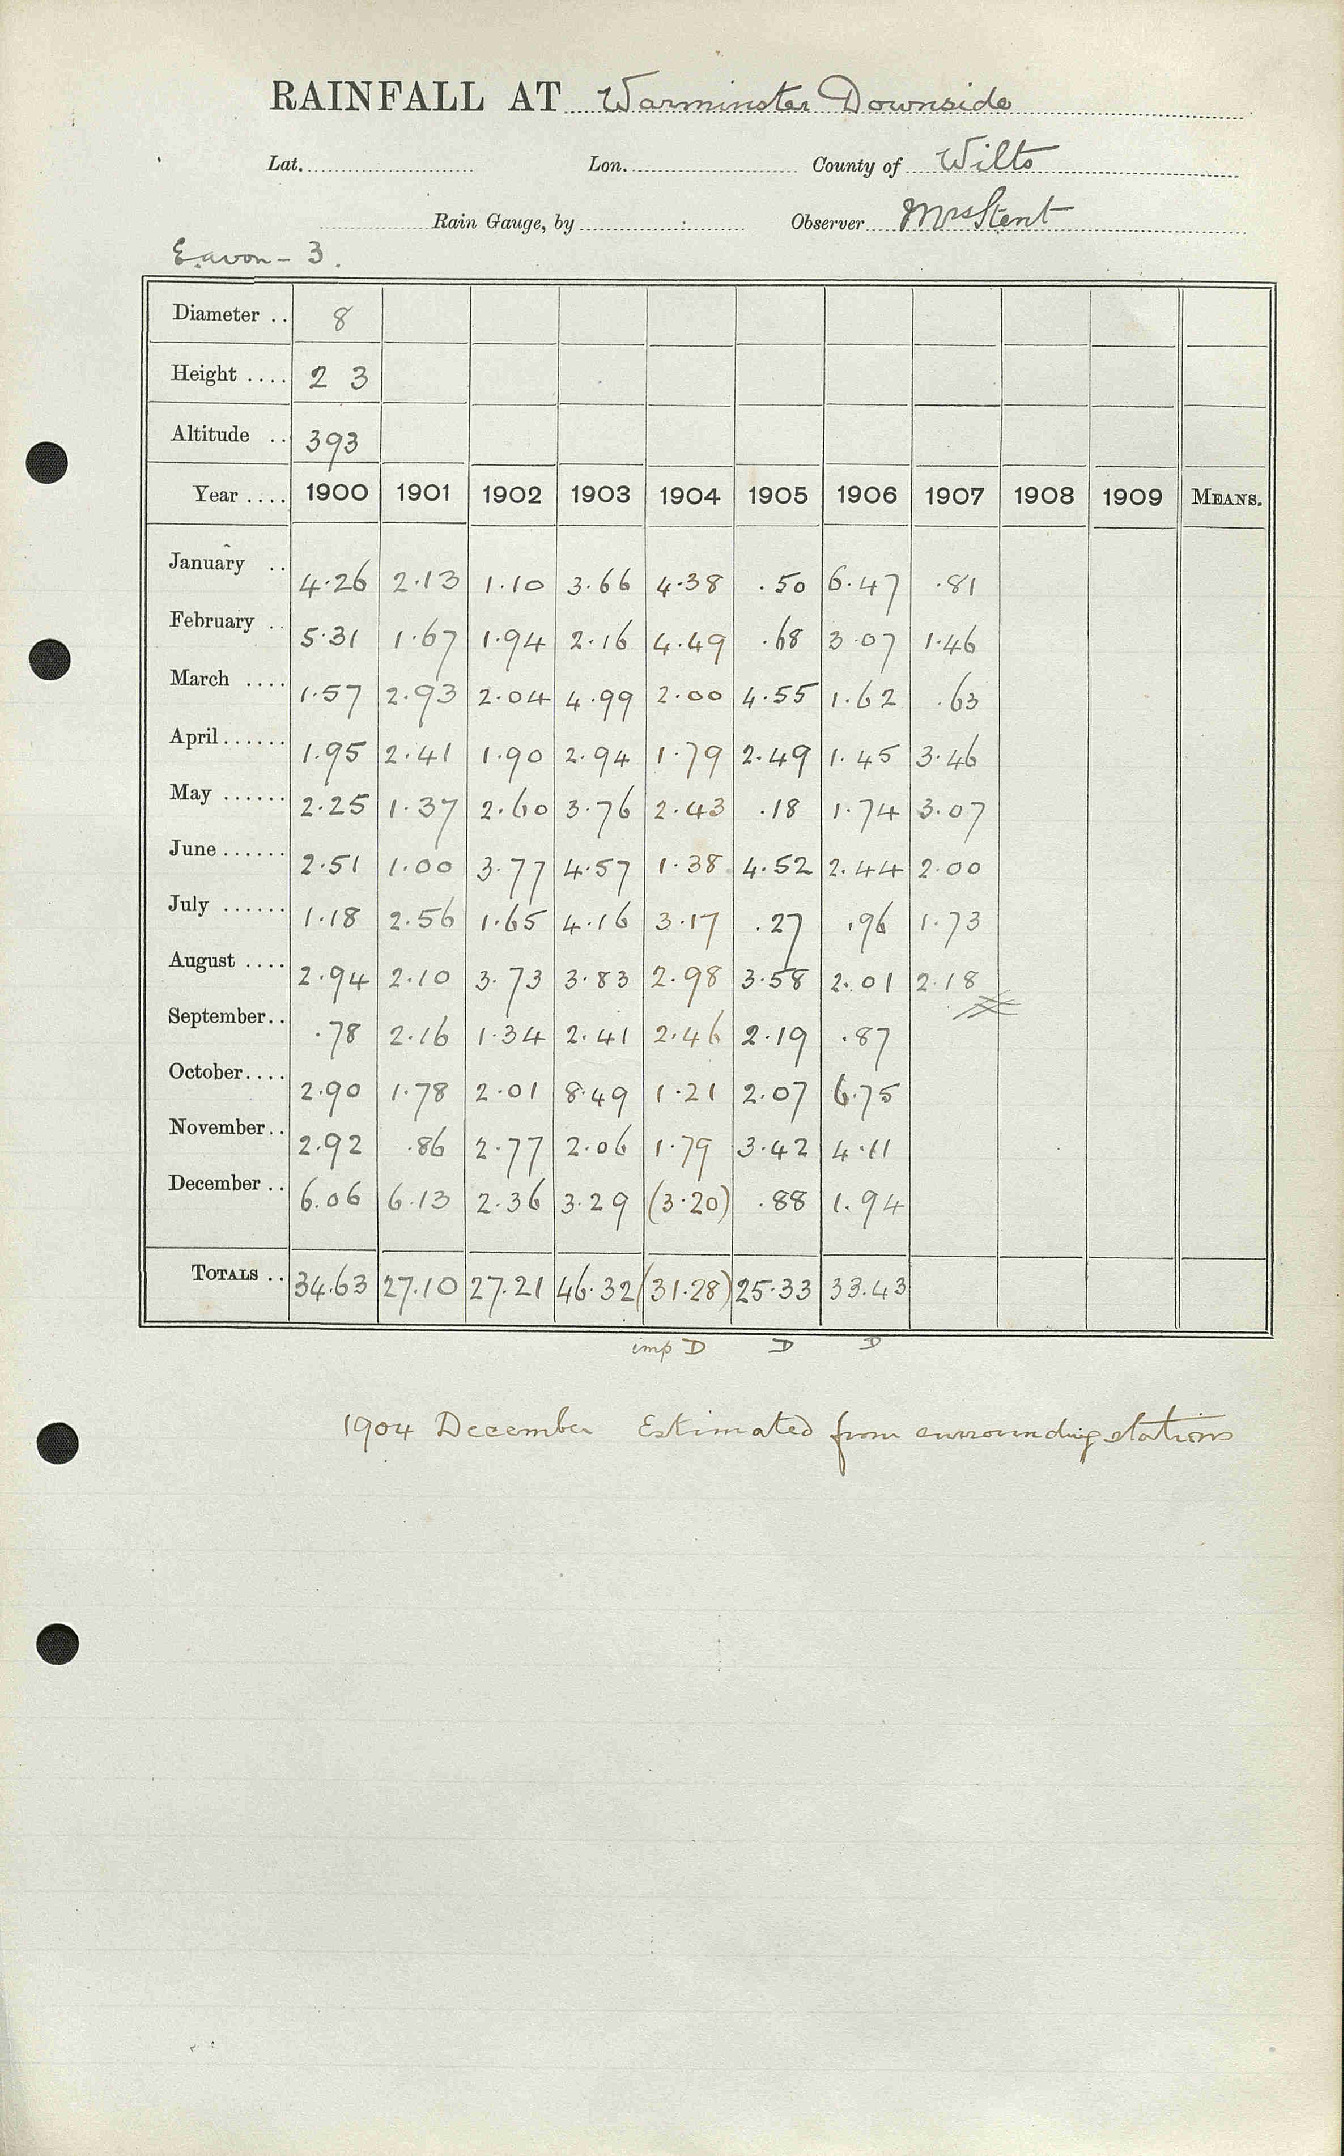 RAINFALL AT Warminster Downside
Lat. Lon. County of Wilts
Rain Gauge, by Observer Mrs Stent
E. avon - 3.
Diameter .. 8
Height .... 2 3
Altitude .. 393
Year .... 1900 1901 1902 1903 1904 1905 1906 1907 1908 1909 MEANS.
January .. 4.26 2.13 1.10 3.66 4.38 .50 6.47 .81
February .. 5.31 1.67 1.94 2.16 4.49 .68 3.07 1.46
March .... 1.57 2.93 2.04 4.99 2.00 4.55 1.62 .63
April...... 1.95 2.41 1.90 2.94 1.79 2.49 1.45 3.46
May ...... 2.25 1.37 2.60 3.76 2.43 .18 1.74 3.07
June...... 2.51 1.00 3.77 4.57 1.38 4.52 2.44 2.00
July ...... 1.18 2.56 1.65 4.16 3.17 .27 .96 1.73
August .... 2.94 2.10 3.73 3.83 2.98 3.58 2.01 2.18
September.. .78 2.16 1.34 2.41 2.46 2.19 .87
October.... 2.90 1.78 2.01 8.49 1.21 2.07 6.75
November.. 2.92 .86 2.77 2.06 1.79 3.42 4.11
December .. 6.06 6.13 2.36 3.29 (3.20) .88 1.94
TOTALS .. 34.63 27.10 27.21 46.32 (31.28) 25.33 33.43
imp D D D
1904 December Estimated from surrounding stations